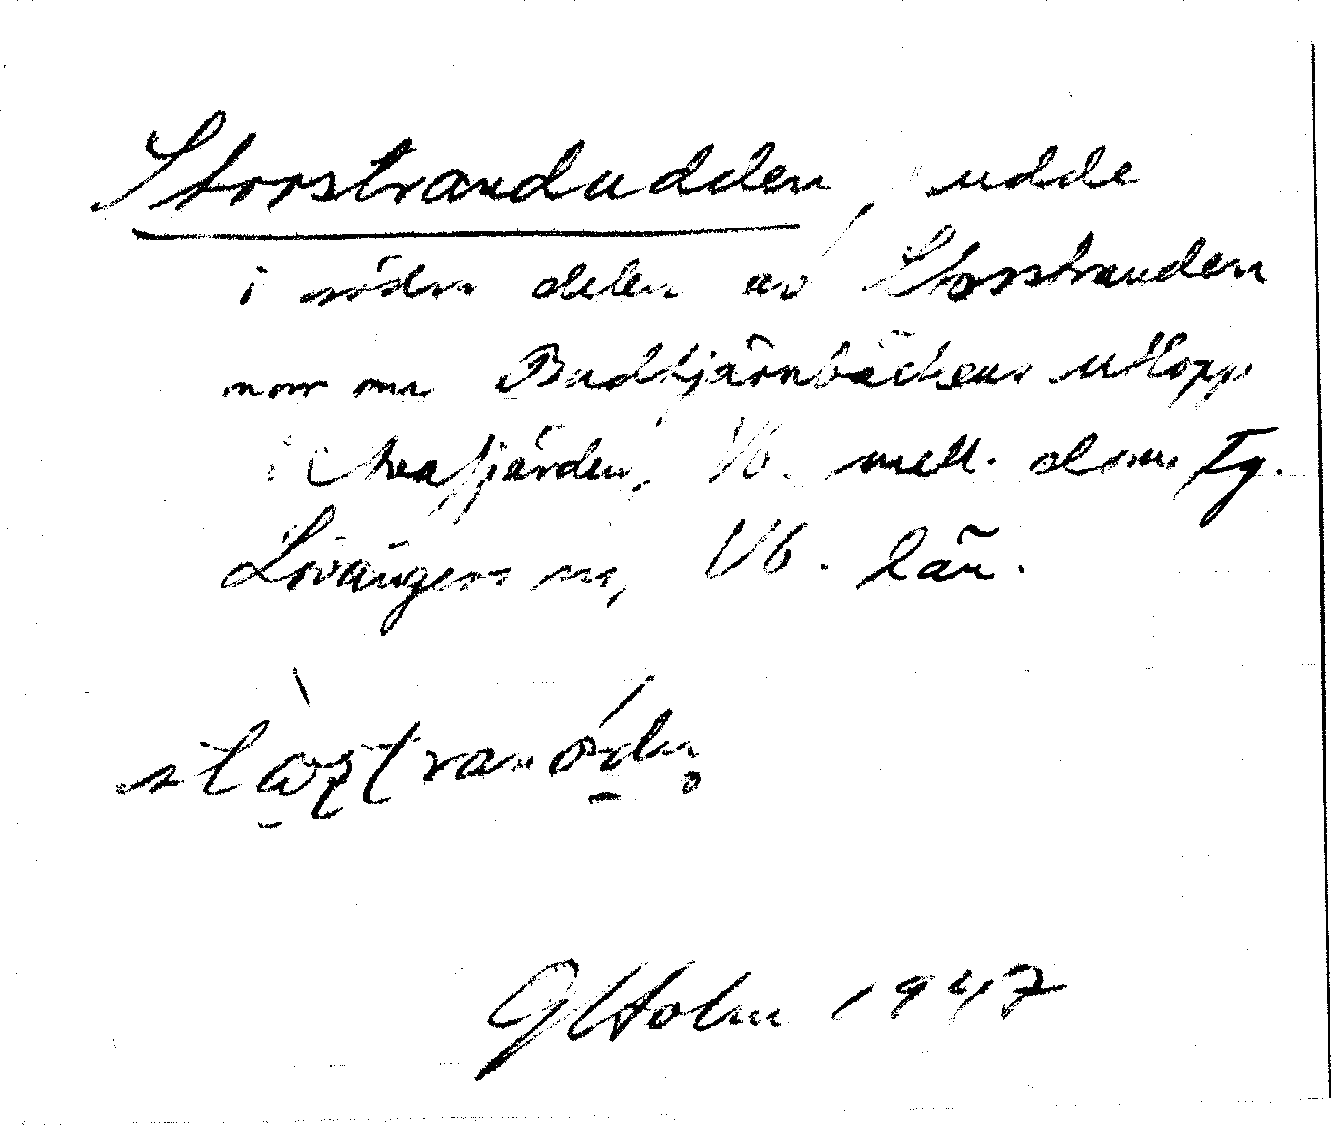 Storstrandudden, udde
i södra delen av Storstranden
norr om Budtjärnbäckens utlopp
i Avafjärden, Vb. mell. dom. Tg.
Lövångers sn, Vb. län.
Gösta Holm 1947